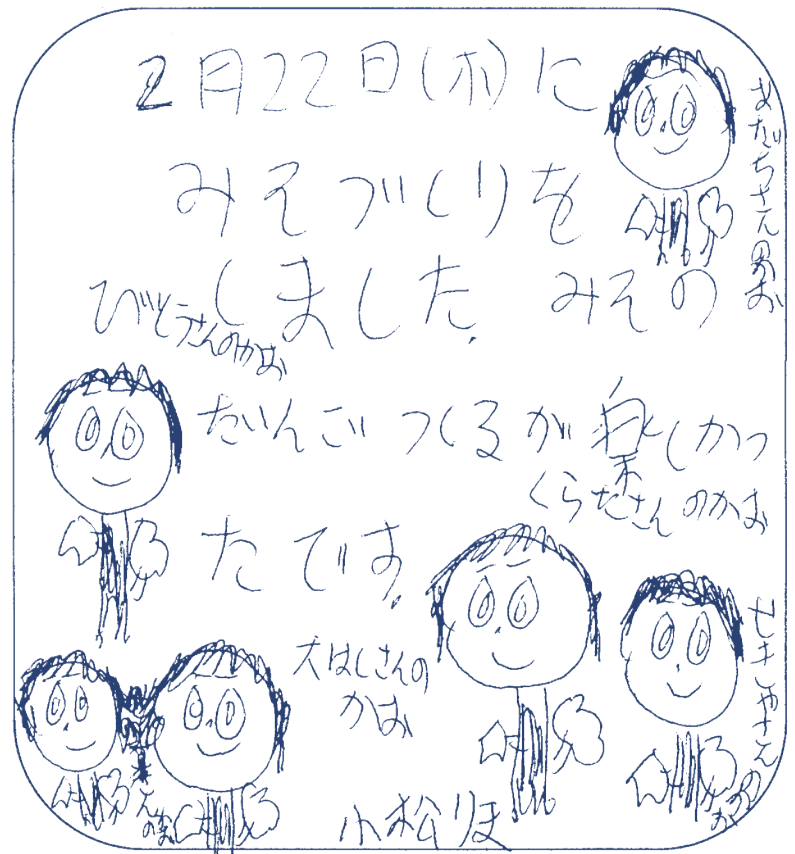 2月22日(木)に
みそづくりを
しました。みその
だんごつくるが楽しかっ
たです。
あだちさんのかお
びとうさんのかお
くらたさんのかお
大はしさんの
かお
小松りま